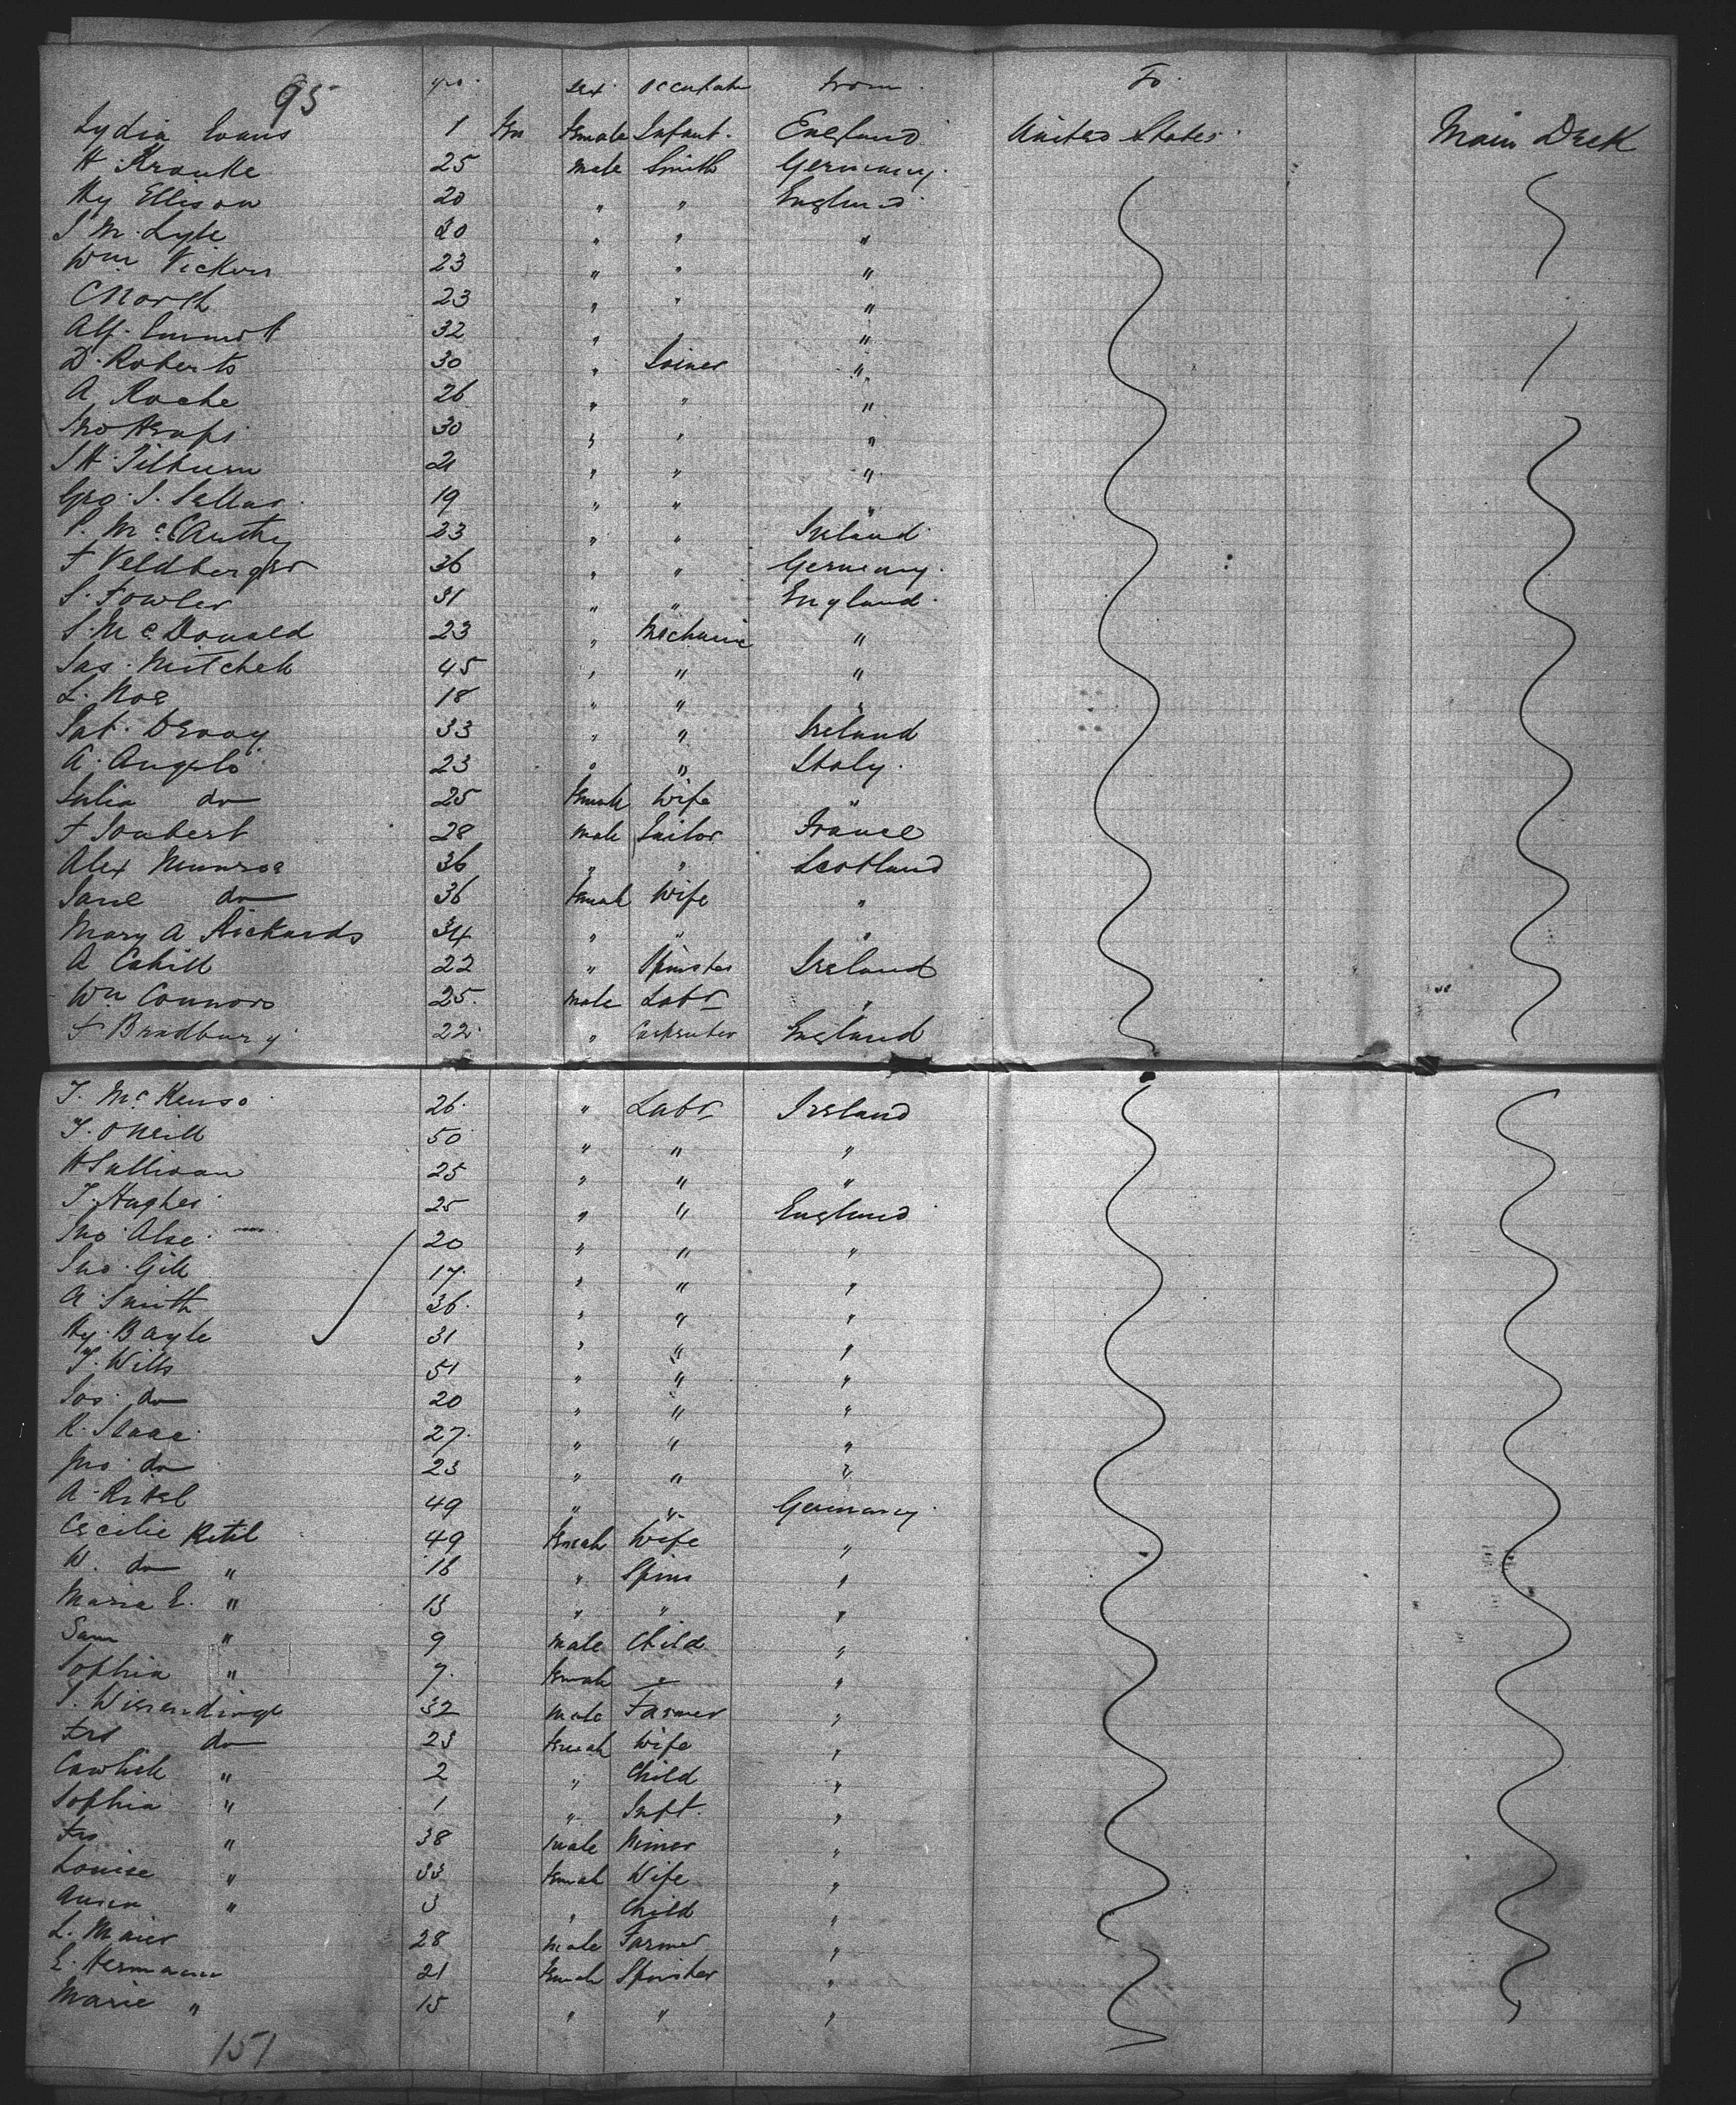 95 yrs. Sex Occupatn From To
Lydia Evans 1 Female Infant. England United States Main Deck
H. Kranke 25 Male Smith Germany.
Hy Ellison 20 " " England
J M. Lyle 20 " " "
Wm Vickers 23 " " "
C North 23 " " "
Alf. 32 " "
D. Roberts 30 " Joiner "
A Roche 26 " " "
30 " " "
J H. Tilburn 21 " " "
Geo. S. Sellar 19 " " "
P. McCarthy 23 " " Ireland
F Veldberger 36 " " Germany.
S. Fowler 31 " " England.
S. McDonald 23 " Mechanic "
Jas. Mitchell 45 " " "
L. Noe 18 " " "
Pat. Devoy 33 " " Ireland
A. Angelo 23 " " Italy.
Julia do 25 Female Wife "
F Joubert 28 Male Tailor France
Alex Munroe 36 " " Scotland
Jane do 36 Female Wife "
Mary A Rickards 34 " " "
A Cahill 22 " Spinster Ireland
Wm Connors 25. Male Labr "
F Bradbury 22. " Carpenter England
T. McKenso 26. " Labr Ireland
T. ONeill 50 " " "
H Sullivan 25 " " "
T. Hughes 25 " " England
Jno Alse 20 " " "
Jno Gill 17. " " "
A. Smith 36. " " "
Hy. Bayle 31 " " "
T. Wills 51 " " "
Jos. do 20 " " "
R. Isaac 27. " " "
Jno do 23 " " "
A. Ritel 49 " " Germany.
Cecilie Ketel 49 Female Wife "
W. do " 18 " Spins "
Maria E. " 15 " " "
Sam " 9 Male Child "
Sophia " 7. Female " "
S. Wisendinge 32 Male Farmer "
Frs do 23 Female Wife "
" 2 " Child "
Sophia " 1 " Inft. "
Frs " 38 Male Miner "
Louise " 33 Female Wife "
Anna " 3 " Child "
L. Maier 28 Male Farmer "
E. Hermann 21 Female Spinster "
Marie " 15 " " "
151